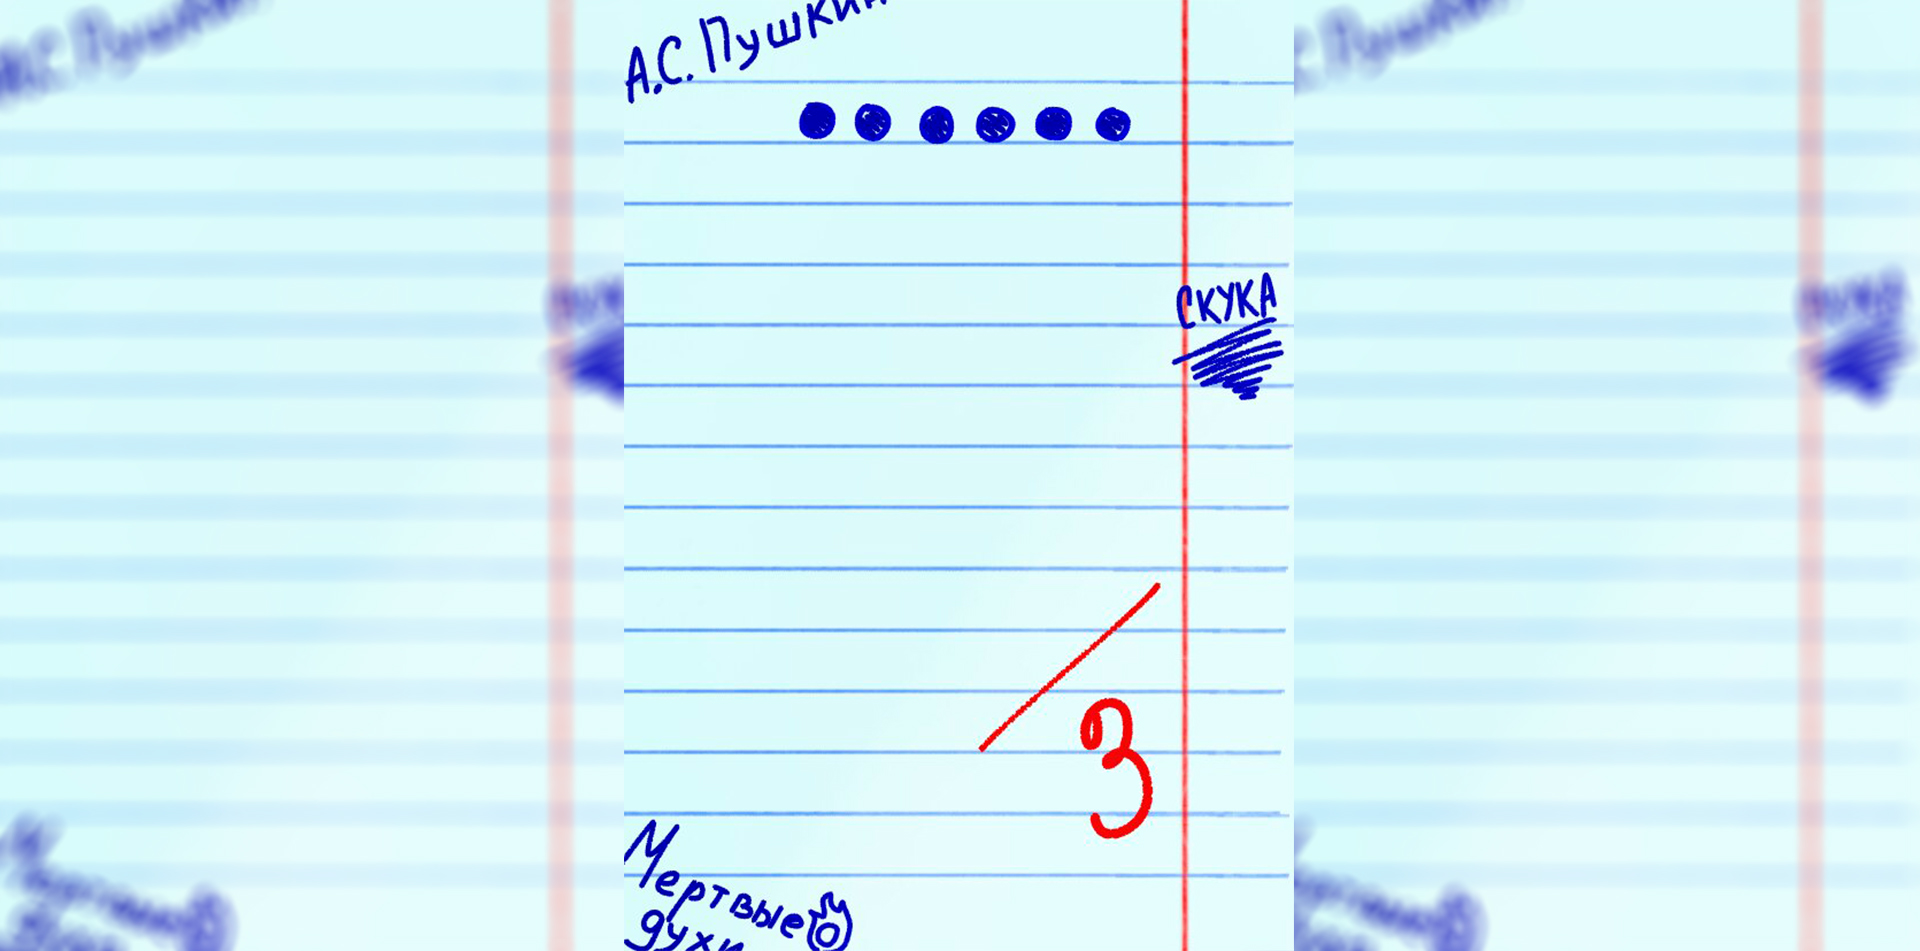 А.С. Пушкин
СКУКА
3
Мертвые
духи